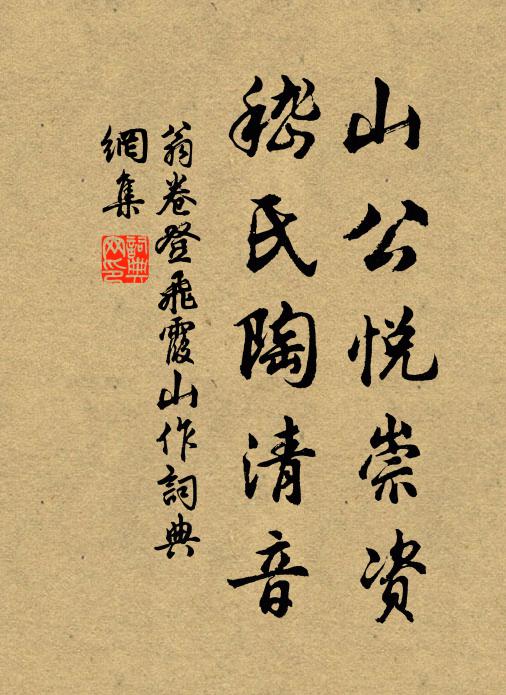 山公悅崇资
嵇氏陶清音
翁卷登飛霞山作詞典
網集
詞典网印